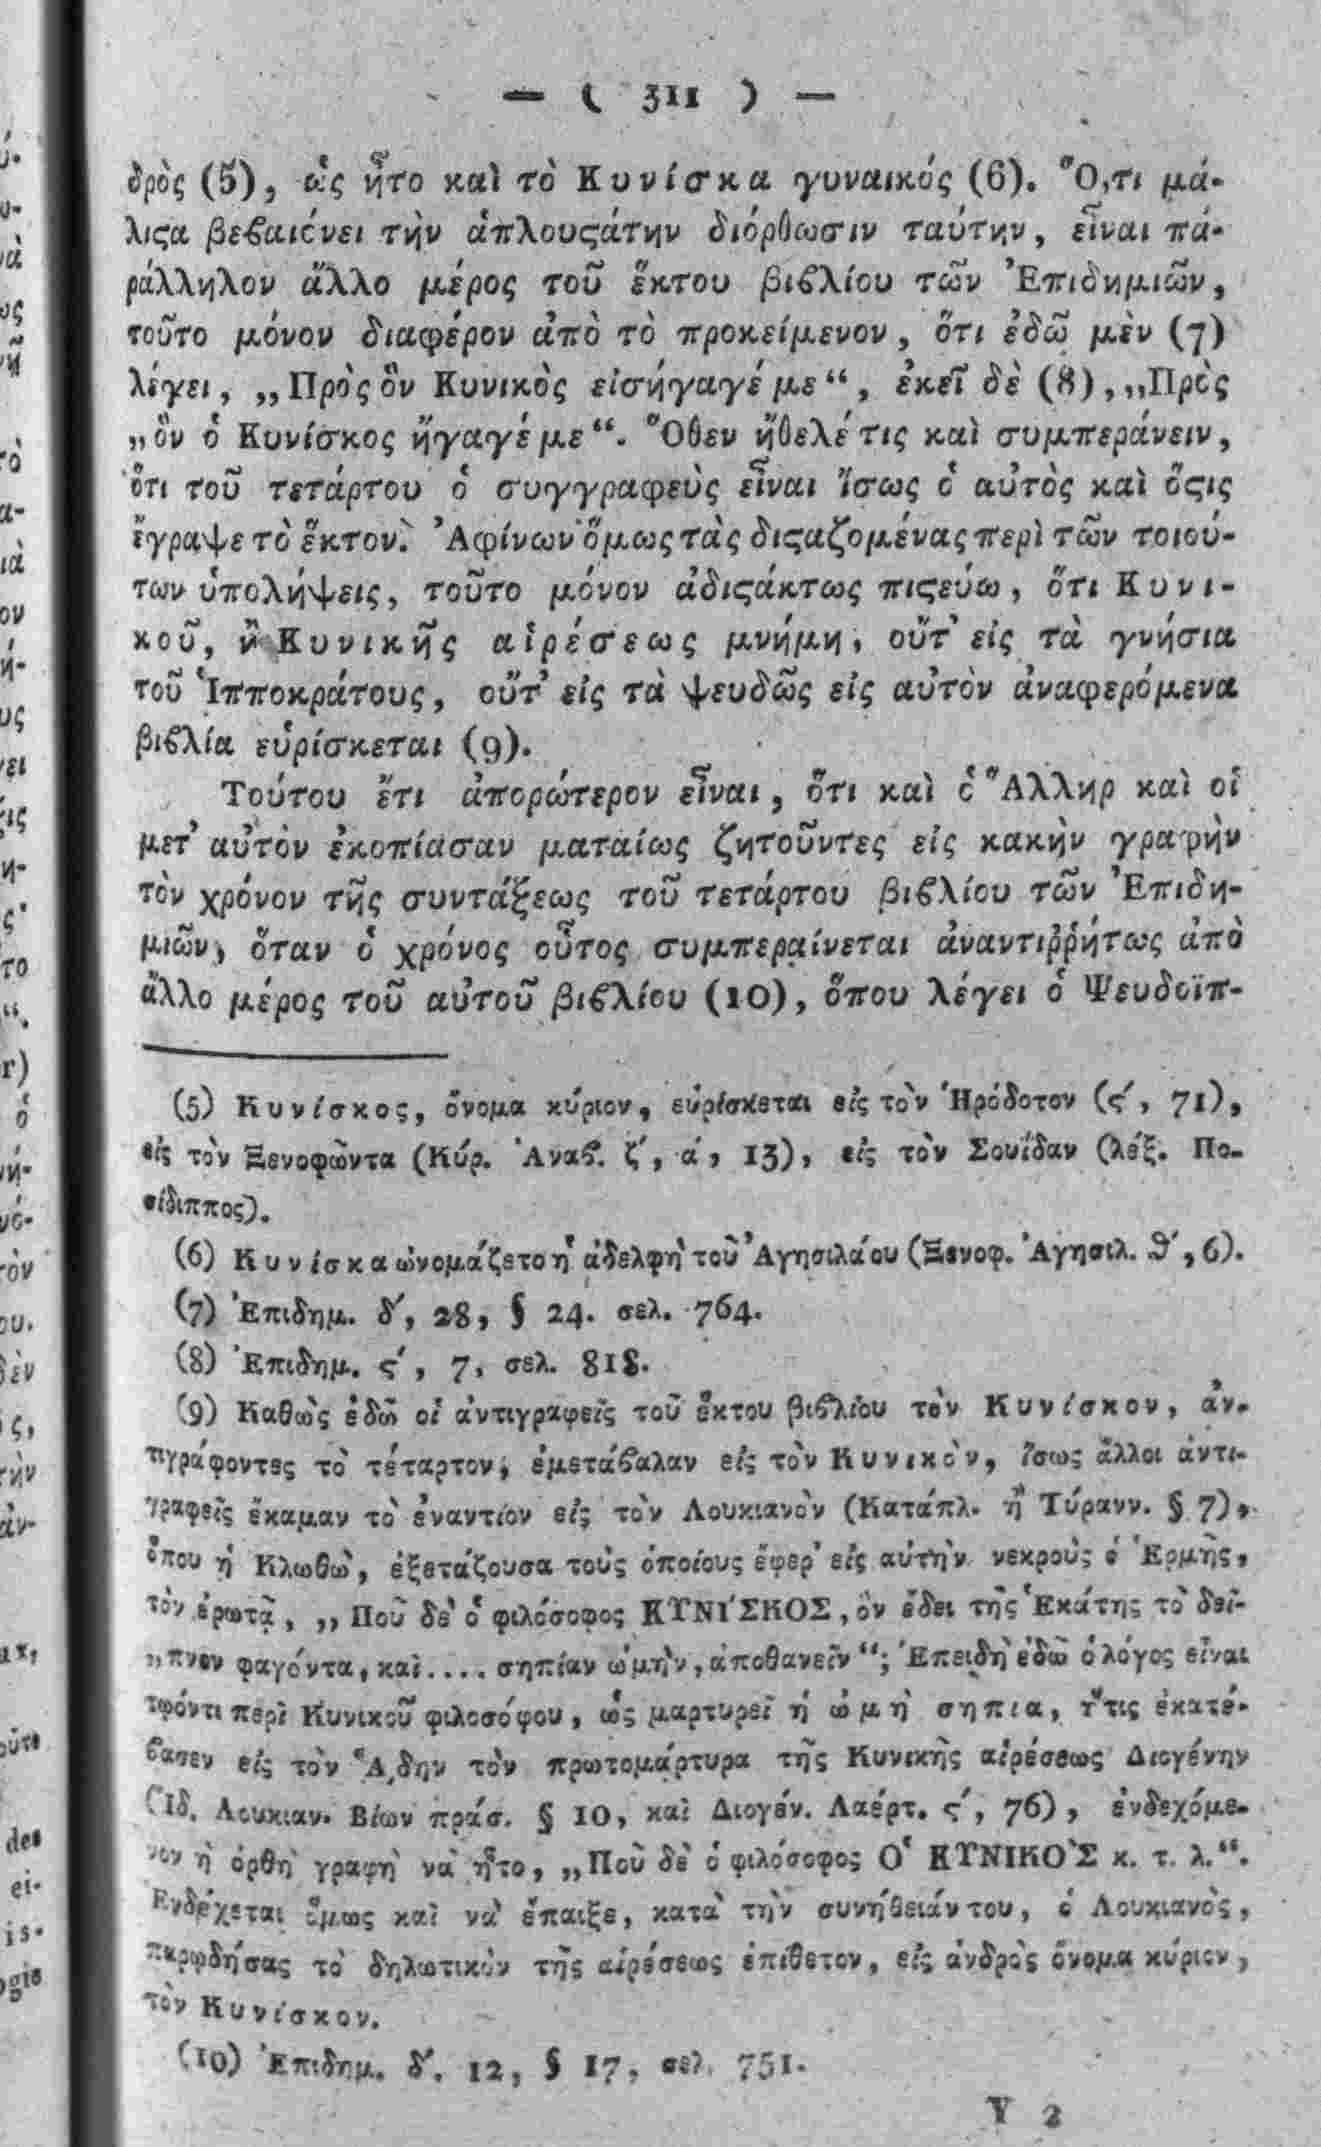 — ( 311 ) —
δρὸς (5), ὡς ἦτο καὶ τὸ Κυνίσκα γυναικός (6). Ὅ,τι μά-
λιϛα βεβαιόνει τὴν ἁπλουϛάτην διόρθωσιν ταύτην, εἶναι πα-
ράλληλον ἄλλο μέρος τοῦ ἕκτου βιβλίου τῶν Ἐπιδημιῶν,
τοῦτο μόνον διαφέρον ἀπὸ τὸ προκείμενον, ὅτι ἐδῶ μὲν (7)
λέγει, „Πρὸς ὃν Κυνικὸς εἰσήγαγέ με“, ἐκεῖ δὲ (8), „Πρὸς
„ὃν ὁ Κυνίσκος ἤγαγέ με“. Ὅθεν ἤθελέ τις καὶ συμπεράνειν,
ὅτι τοῦ τετάρτου ὁ συγγραφεὺς εἶναι ἴσως ὁ αὐτὸς καὶ ὅϛις
ἔγραψε τὸ ἕκτον. Ἀφίνων ὅμως τὰς διϛαζομένας περὶ τῶν τοιού-
των ὑπολήψεις, τοῦτο μόνον ἀδιϛάκτως πιϛεύω, ὅτι Κυνι-
κοῦ, ἢ Κυνικῆς αἱρέσεως μνήμη, οὔτ’ εἰς τὰ γνήσια
τοῦ Ἱπποκράτους, οὔτ’ εἰς τὰ ψευδῶς εἰς αὐτὸν ἀναφερόμενα
βιβλία εὑρίσκεται (9).
Τούτου ἔτι ἀπορώτερον εἶναι, ὅτι καὶ ὁ Ἄλληρ καὶ οἱ
μετ’ αὐτὸν ἐκοπίασαν ματαίως ζητοῦντες εἰς κακὴν γραφὴν
τὸν χρόνον τῆς συντάξεως τοῦ τετάρτου βιβλίου τῶν Ἐπιδη-
μιῶν, ὅταν ὁ χρόνος οὗτος συμπεραίνεται ἀναντιῤῥήτως ἀπὸ
ἄλλο μέρος τοῦ αὐτοῦ βιβλίου (10), ὅπου λέγει ὁ Ψευδοϊπ-
(5) Κυνίσκος, ὄνομα κύριον, εὑρίσκεται εἰς τὸν Ἡρόδοτον (ϛ΄, 71),
εἰς τὸν Ξενοφῶντα (Κύρ. Ἀναβ. ζ΄, ά, 13), εἰς τὸν Σουΐδαν (λέξ. Πο-
σίδιππος).
(6) Κυνίσκα ὠνομάζετο ἡ ἀδελφὴ τοῦ Ἀγησιλάου (Ξενοφ. Ἀγησιλ. θ΄, 6).
(7) Ἐπιδημ. δ΄, 28, § 24. σελ. 764.
(8) Ἐπιδημ. ϛ΄, 7, σελ. 818.
(9) Καθὼς ἐδῶ οἱ ἀντιγραφεῖς τοῦ ἕκτου βιβλίου τὸν Κυνίσκον, ἀν-
τιγράφοντες τὸ τέταρτον, ἐμετάβαλαν εἰς τὸν Κυνικὸν, ἴσως ἄλλοι ἀντι-
γραφεῖς ἔκαμαν τὸ ἐναντίον εἰς τὸν Λουκιανὸν (Κατάπλ. ἢ Τύρανν. § 7),
ὅπου ἡ Κλωθὼ, ἐξετάζουσα τοὺς ὁποίους ἔφερ’ εἰς αὐτὴν νεκροὺς ὁ Ἑρμῆς,
τὸν ἐρωτᾷ, „Ποῦ δὲ ὁ φιλόσοφος ΚΥΝΙ΄ΣΚΟΣ, ὃν ἔδει τῆς Ἑκάτης τὸ δεῖ-
„πνον φαγόντα, καὶ.... σηπίαν ὠμὴν, ἀποθανεῖν“; Ἐπειδὴ ἐδῶ ὁ λόγος εἶναι
τῳόντι περὶ Κυνικοῦ φιλοσόφου, ὡς μαρτυρεῖ ἡ ὠμὴ σηπία, ἥτις ἐκατέ-
βασεν εἰς τὸν ᾍδην τὸν πρωτομάρτυρα τῆς Κυνικῆς αἱρέσεως Διογένην
(Ἰδ. Λουκιαν. Βίων πράσ. § 10, καὶ Διογέν. Λαέρτ. ϛ΄, 76), ἐνδεχόμε-
νον ἡ ὀρθὴ γραφὴ νὰ ἦτο, „Ποῦ δὲ ὁ φιλόσοφος Ὁ ΚΥΝΙΚΟ`Σ κ. τ. λ.“.
Ἐνδέχεται ὅμως καὶ νὰ ἔπαιξε, κατὰ τὴν συνήθειάν του, ὁ Λουκιανὸς,
παρῳδήσας τὸ δηλωτικὸν τῆς αἱρέσεως ἐπίθετον, εἰς ἀνδρὸς ὄνομα κύριον,
τὸν Κυνίσκον.
(10) Ἐπιδημ. δ΄. 12, § 17, σελ. 751.
Y 2